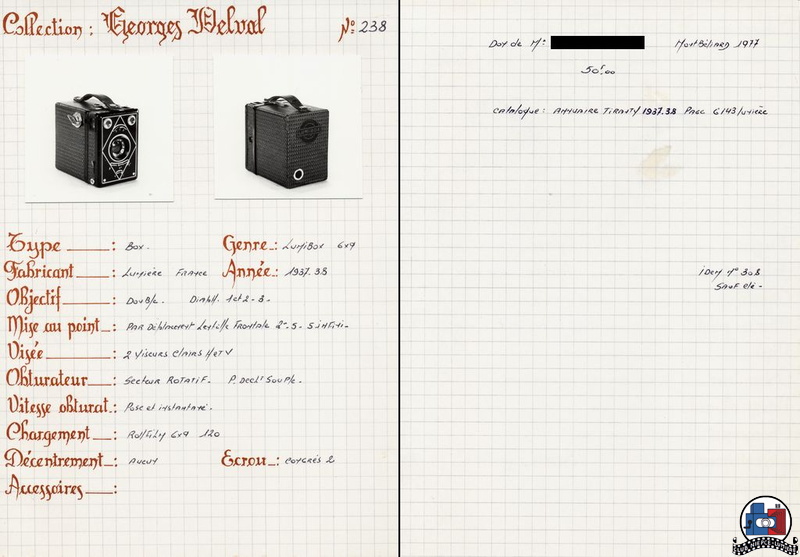 Collection : Georges Delval
N° 238
Type : Box.
Genre : Lumibox 6x9
Fabricant : Lumière France
Année : 1937.38
Objectif : Double. Diaph. 1 et 2 - 3 -
Mise au point : Par Déplacement Lentille Frontale 2m - 5 - 5 infini -
Visée : 2 Viseurs Clairs H et V
Obturateur : Secteur Rotatif. P. Decl' Souple.
Vitesse obturat. : Pose et instantané.
Chargement : Rollfilm 6x9 120
Décentrement : Aucun
Ecrou : Congrès 2
Accessoires :
Don de Mr : Montbéliard 1977
50F,00
Catalogue : Annuaire Tiranty 1937.38 Page 61 43 lumière
idem n° 308
Sauf clé -